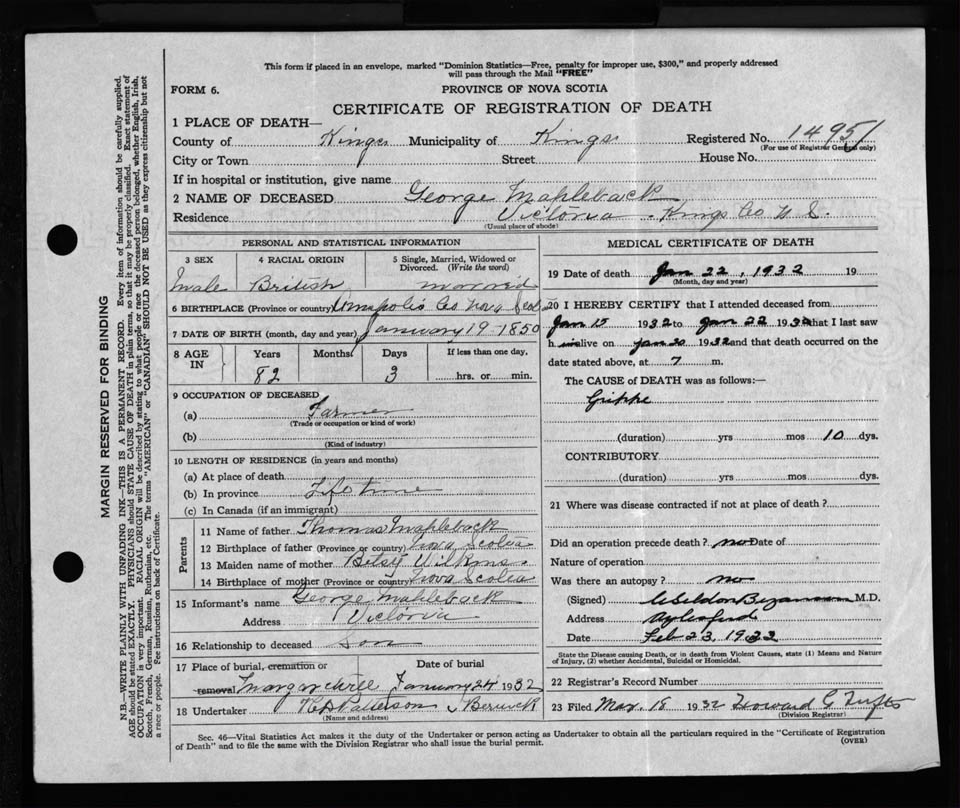 This form if placed in an envelope, marked "Dominion Statistics—Free, penalty for improper use, $300," and properly addressed
will pass through the Mail "FREE"
FORM 6.
PROVINCE OF NOVA SCOTIA
CERTIFICATE OF REGISTRATION OF DEATH
1 PLACE OF DEATH—
County of Kings Municipality of Kings Registered No. 14951
(For use of Registrar General only)
City or Town Street House No.
If in hospital or institution, give name
2 NAME OF DECEASED George Mapleback
Residence Victoria Kings Co N S.
(Usual place of abode)
PERSONAL AND STATISTICAL INFORMATION
3 SEX 4 RACIAL ORIGIN 5 Single, Married, Widowed or
Divorced. (Write the word)
male British married
6 BIRTHPLACE (Province or country) Annapolis Co Nova Scotia
7 DATE OF BIRTH (month, day and year) January 19 1850
8 AGE IN Years Months Days If less than one day,
82 3 hrs. or min.
9 OCCUPATION OF DECEASED
(a) Farmer
(Trade or occupation or kind of work)
(b)
(Kind of industry)
10 LENGTH OF RESIDENCE (in years and months)
(a) At place of death
(b) In province Life time
(c) In Canada (if an immigrant)
Parents
11 Name of father Thomas Mapleback
12 Birthplace of father (Province or country) Nova Scotia
13 Maiden name of mother Betsy Wilkins
14 Birthplace of mother (Province or country) Nova Scotia
15 Informant's name George Mapleback
Address Victoria
16 Relationship to deceased Son
17 Place of burial, cremation or Date of burial
removal Margaretville January 24 1932
18 Undertaker Patterson Berwick
(Name and address)
MEDICAL CERTIFICATE OF DEATH
19 Date of death Jan 22, 1932 19
(Month, day and year)
20 I HEREBY CERTIFY that I attended deceased from
Jan 15 1932 to Jan 22 1932 that I last saw
h im alive on Jan 20 1932 and that death occurred on the
date stated above, at 7 m.
The CAUSE of DEATH was as follows:—
Grippe
(duration) yrs mos 10 dys.
CONTRIBUTORY
(duration) yrs mos dys.
21 Where was disease contracted if not at place of death?
Did an operation precede death? no Date of
Nature of operation
Was there an autopsy? no
(Signed) Weldon Bezanson M.D.
Address Aylesford
Date Feb 23, 1932
State the Disease causing Death, or in death from Violent Causes, state (1) Means and Nature
of Injury, (2) whether Accidental, Suicidal or Homicidal.
22 Registrar's Record Number
23 Filed Mar 18 1932 Howard G Tufts
(Division Registrar)
Sec. 46—Vital Statistics Act makes it the duty of the Undertaker or person acting as Undertaker to obtain all the particulars required in the "Certificate of Registration
of Death" and to file the same with the Division Registrar who shall issue the burial permit.
(OVER)
MARGIN RESERVED FOR BINDING
N.B.—WRITE PLAINLY WITH UNFADING INK—THIS IS A PERMANENT RECORD. Every item of information should be carefully supplied.
AGE should be stated EXACTLY. PHYSICIANS should STATE CAUSE OF DEATH in plain terms, so that it may be properly classified. Exact statement of
OCCUPATION is very important. RACIAL ORIGIN will be described by stating to what people or race the deceased person belonged, whether English, Irish,
Scotch, French, German, Russian, Ruthenian, etc. The terms "AMERICAN" or "CANADIAN" SHOULD NOT BE USED as they express citizenship but not
a race or people. Fee instructions on back of Certificate.